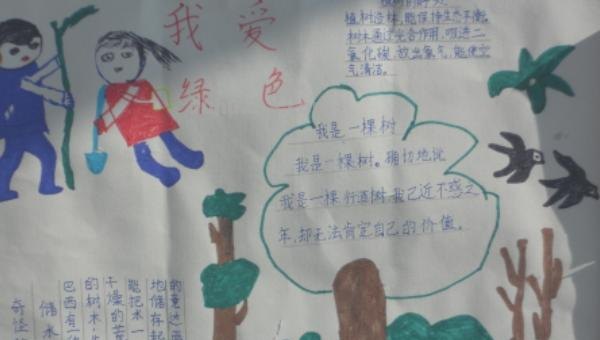 我爱
绿色
植树造林,能保持生态平衡。
树木通过光合作用,吸进二
氧化碳,放出氧气,能使空
气清洁。
我是一棵树
我是一棵树。确切地说
我是一棵行道树。我已近不惑之
年,却无法肯定自己的价值。
地储存起
能把水一
干燥的
的树木,
巴西有一
储水
奇怪